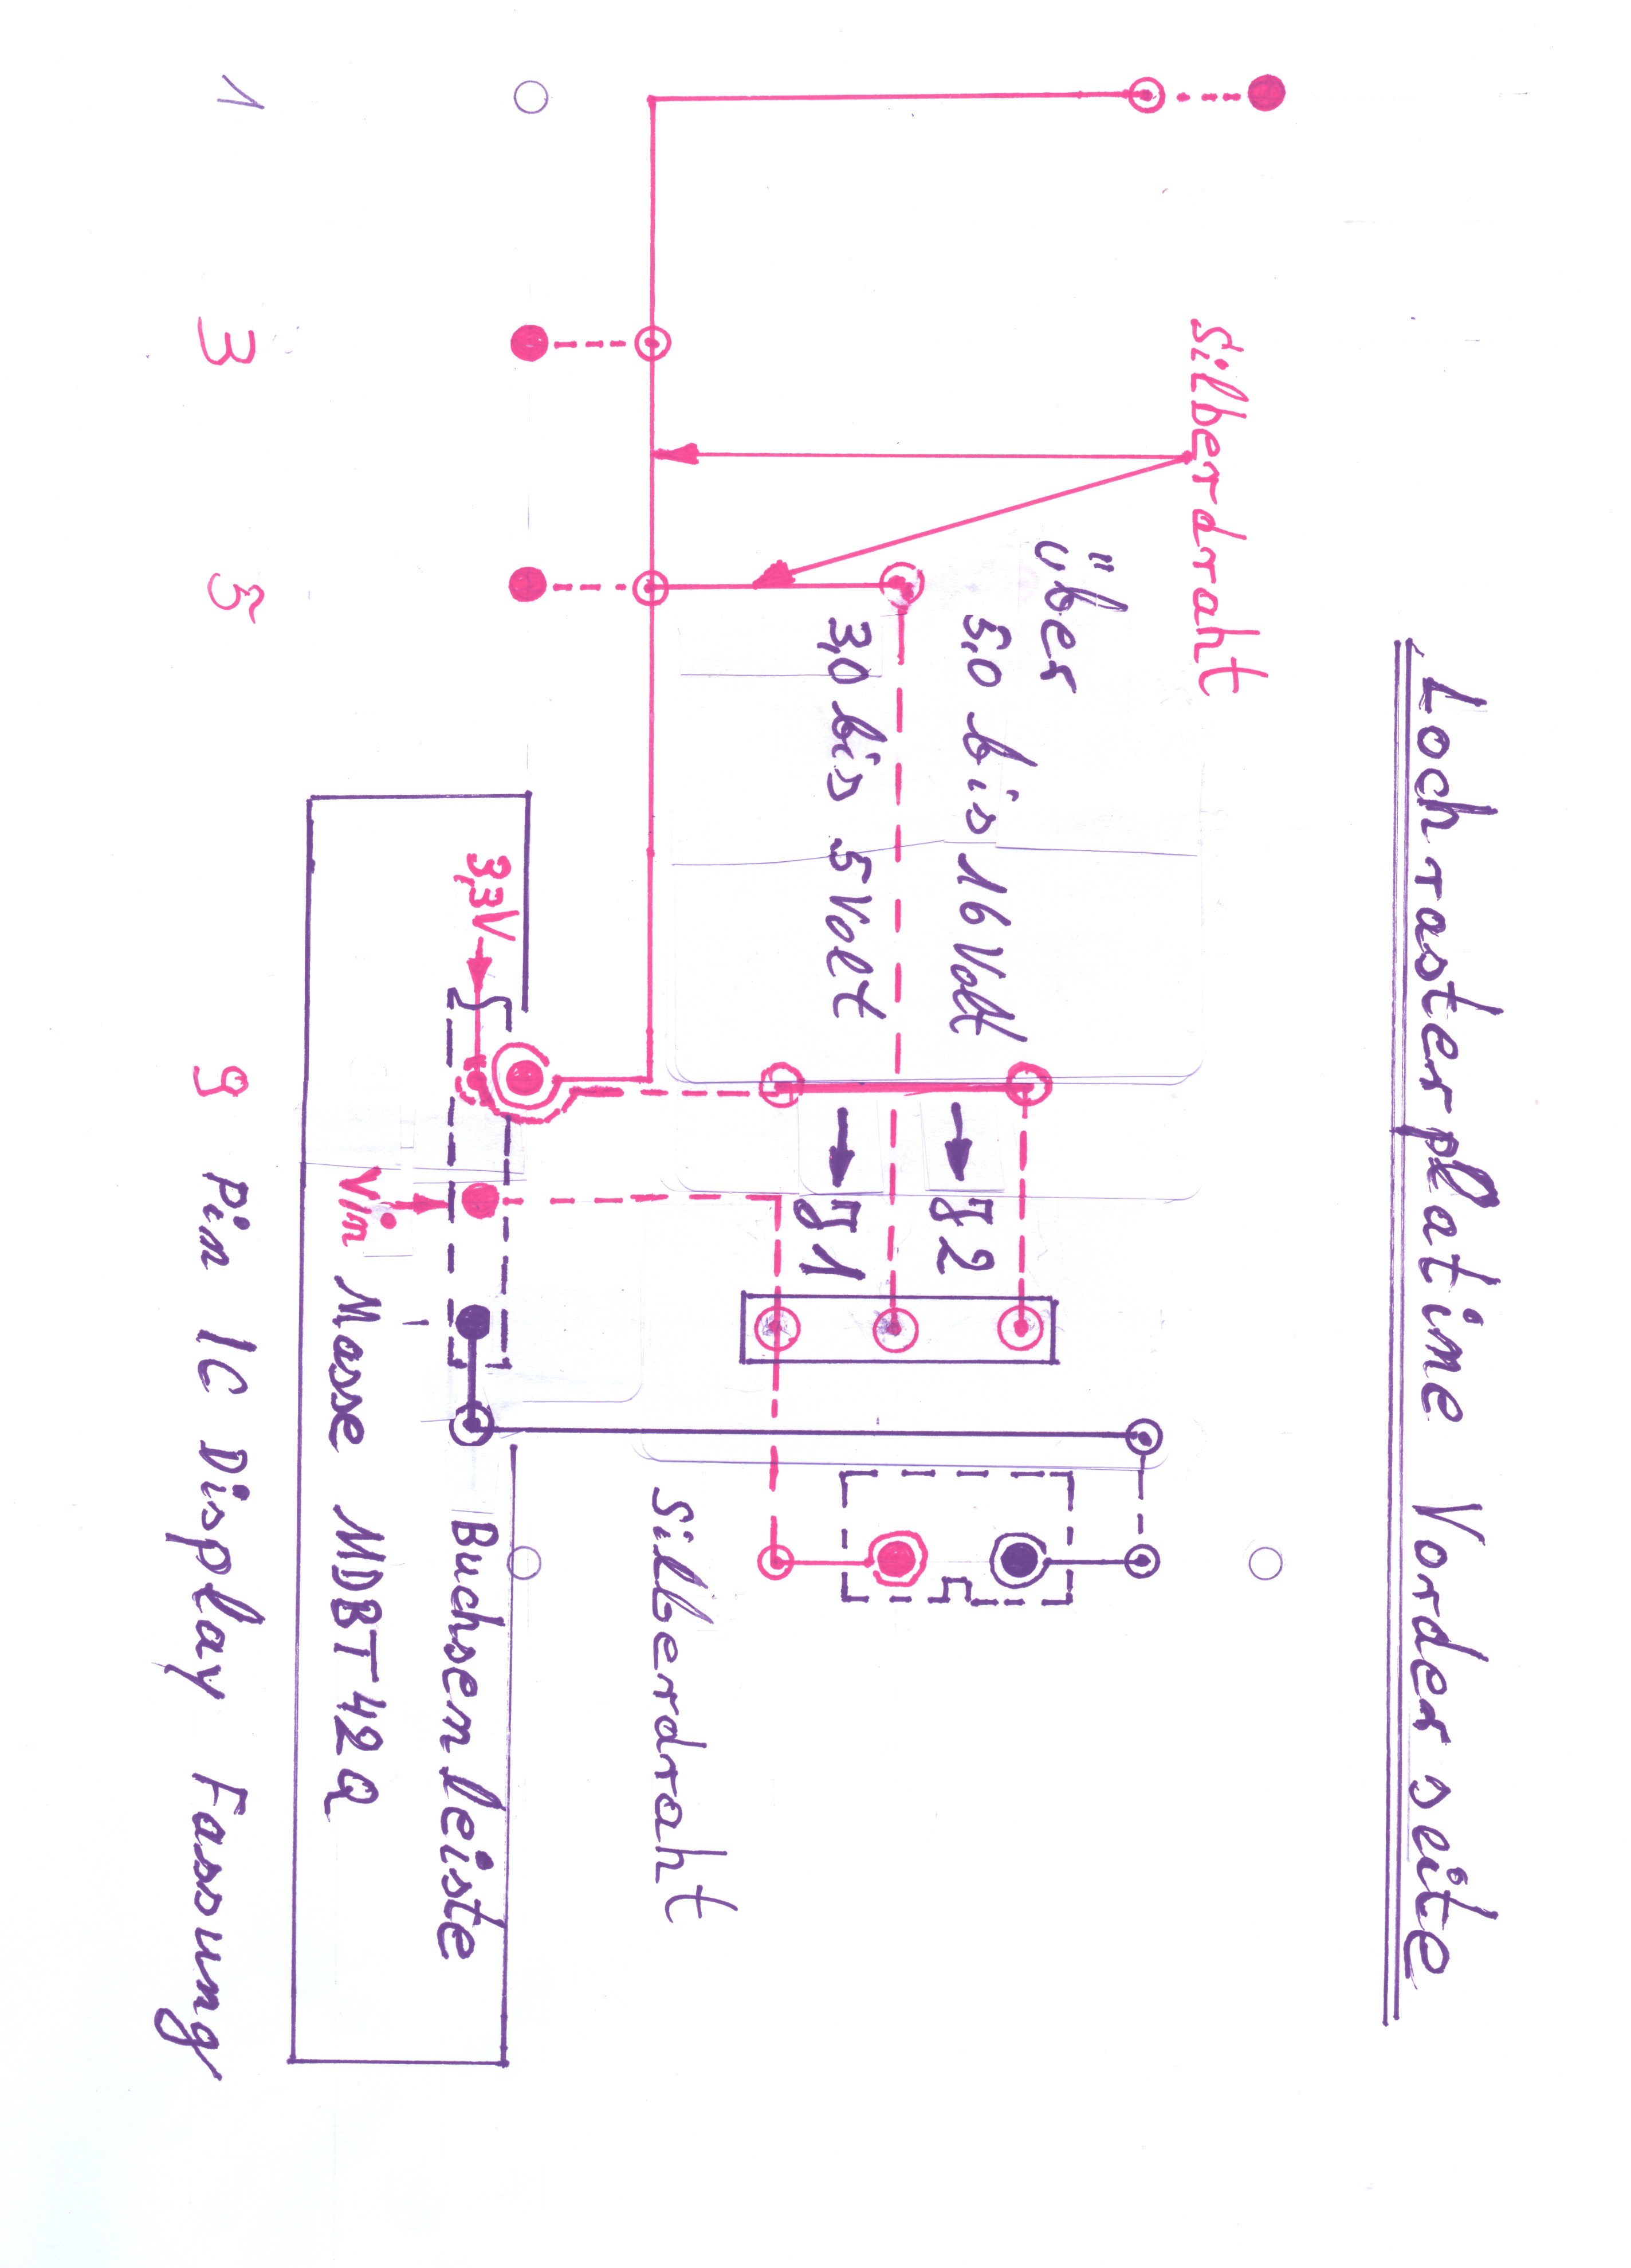 Lochrasterplatine Vorderseite
Silberdraht
über
5,0 bis 16 Volt → J2
3,0 bis 5 Volt → J1
Silberdraht
3,3V
Buchsenleiste
Vin Masse MDBT42Q
1 3 5 9 Pin IC Display Fassung